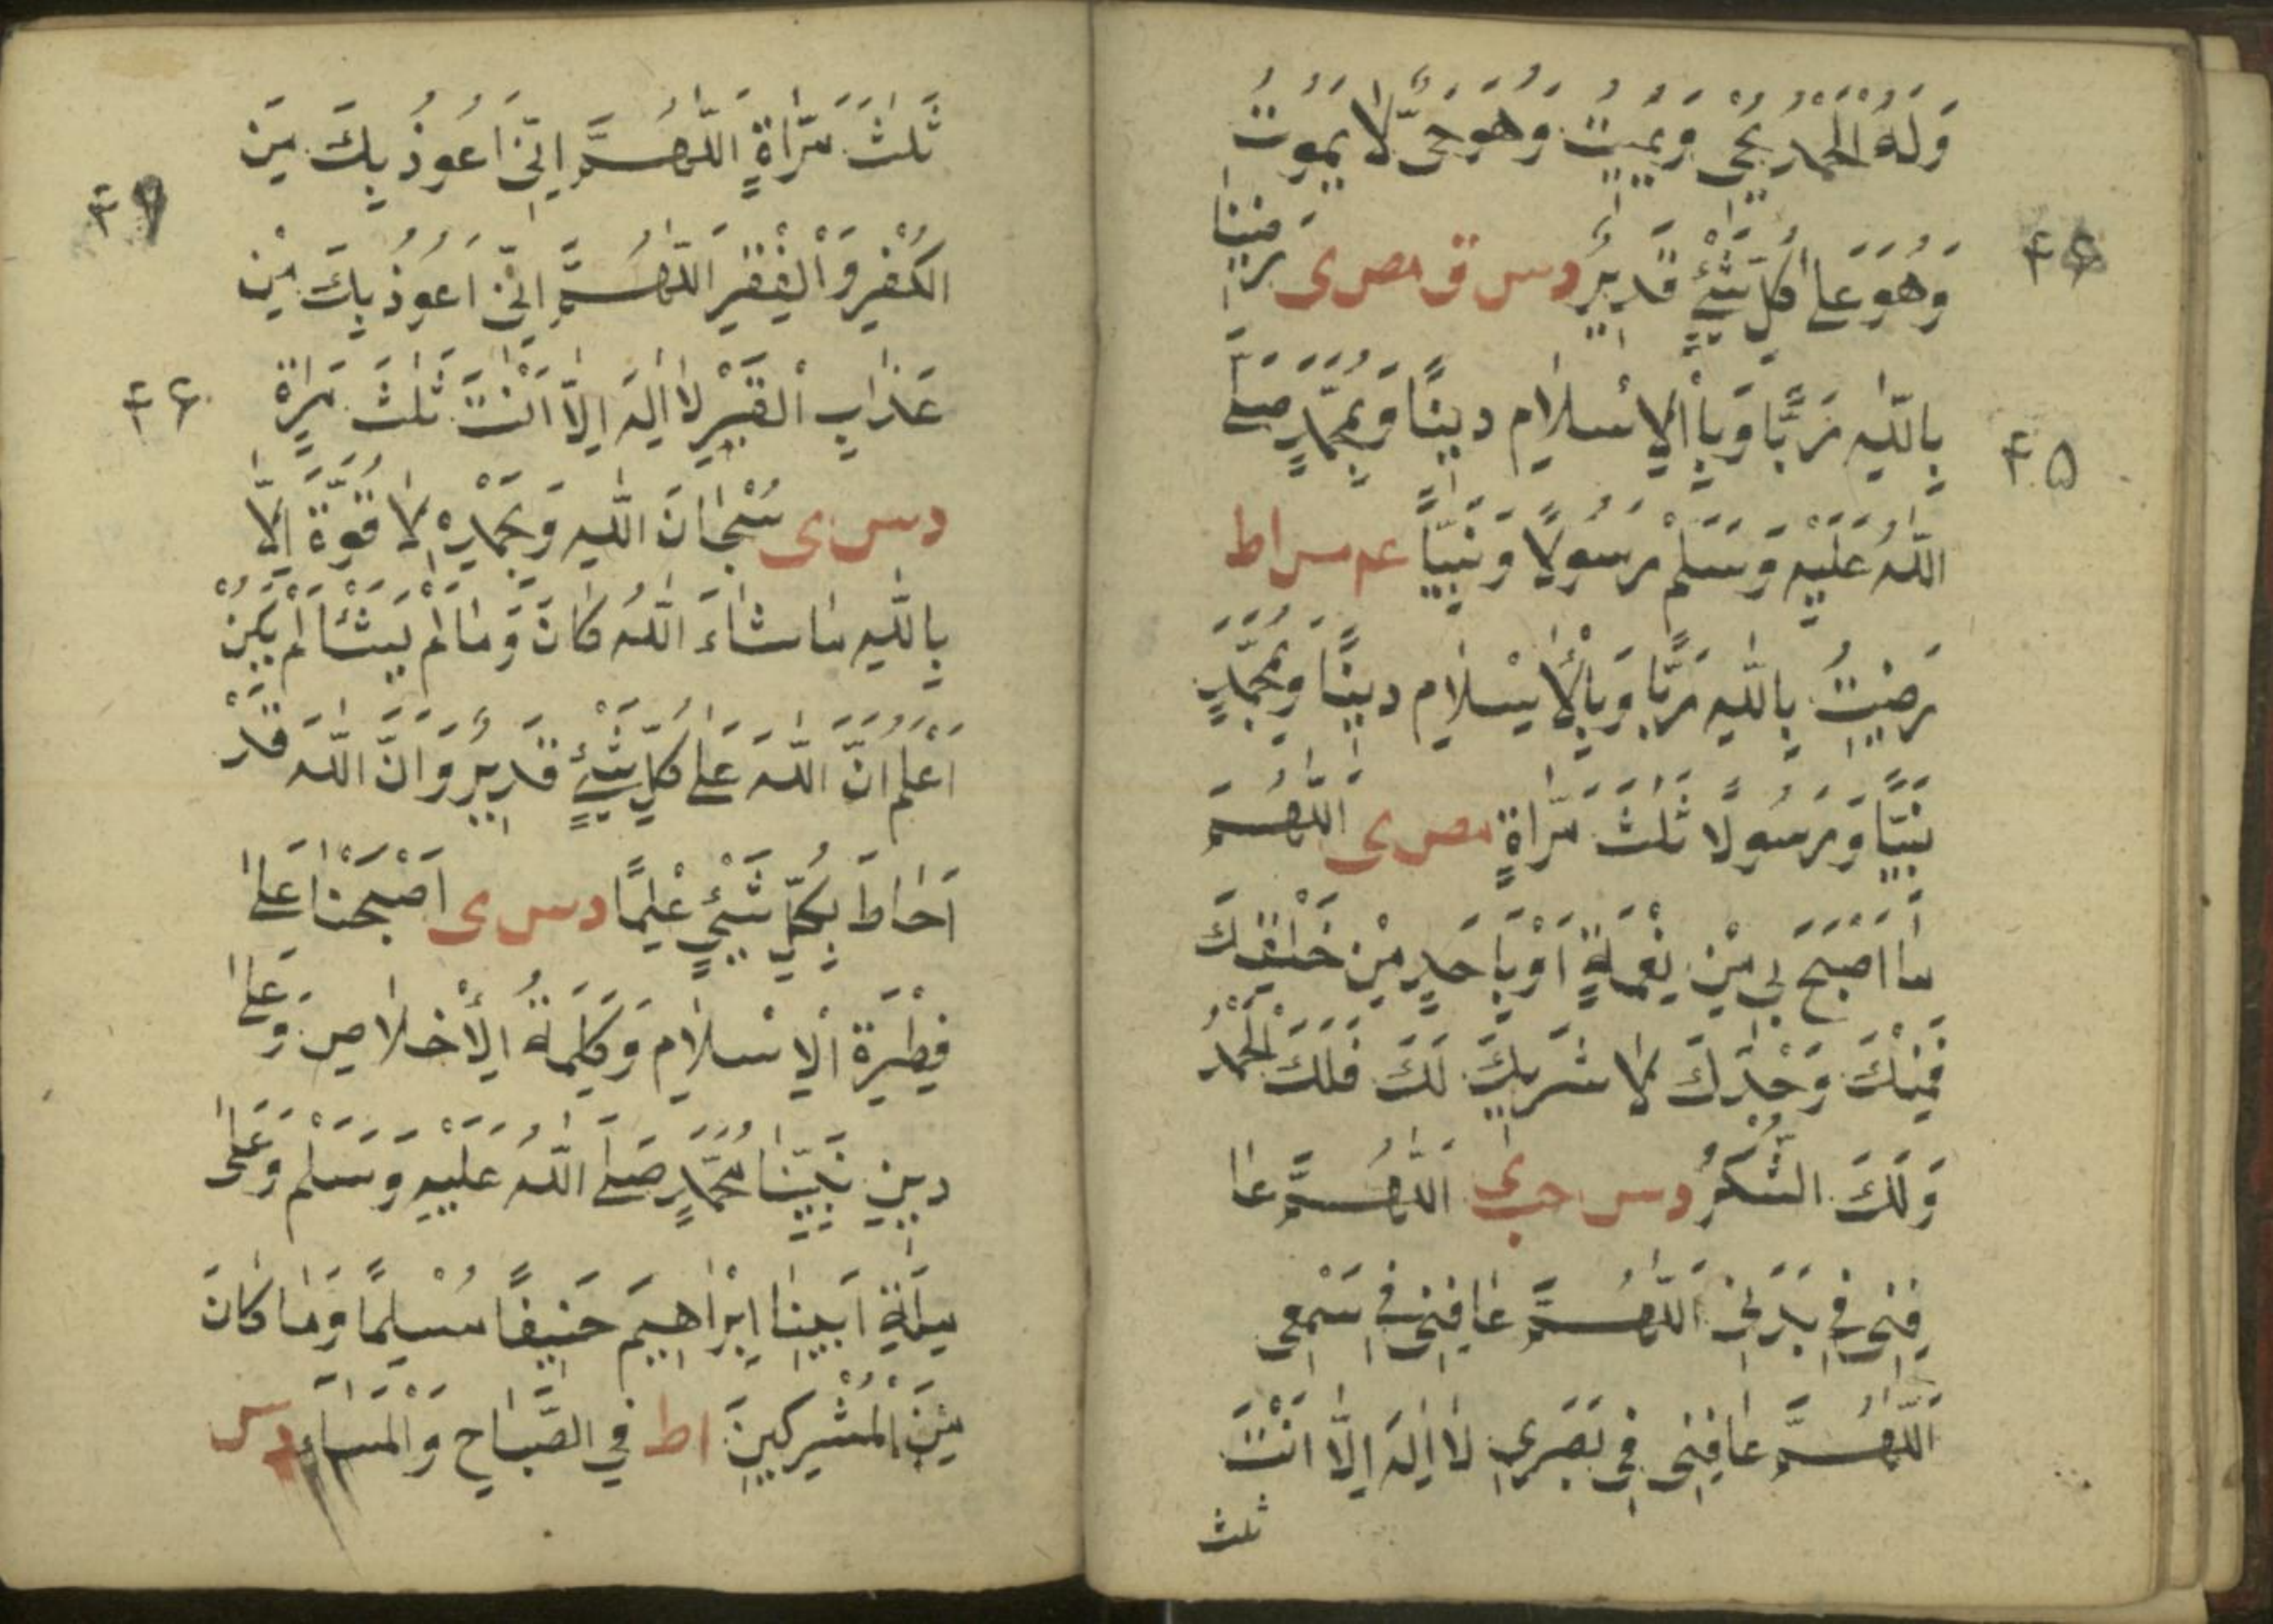 وَلَهُ الْحَمْدُ يُحْيِى وَيُمِيتُ وَهُوَ حَىٌّ لَا يَمُوتُ
وَهُوَ عَلٰى كُلِّ شَيْءٍ قَدِيرٌ دس ق مص ى رَضِينَا
۴۶
بِاللّٰهِ رَبًّا وَبِالْاِسْلَامِ دِينًا وَبِمُحَمَّدٍ صَلَّى
۴۵
اللّٰهُ عَلَيْهِ وَسَلَّمَ رَسُولًا وَنَبِيًّا عه مس اط
رَضِيتُ بِاللّٰهِ رَبًّا وَبِالْاِسْلَامِ دِينًا وَبِمُحَمَّدٍ
نَبِيًّا وَرَسُولًا ثَلٰثَ مَرَّاةٍ مص ى اَللّٰهُمَّ
مَا اَصْبَحَ بِى مِنْ نِعْمَةٍ اَوْ بِاَحَدٍ مِنْ خَلْقِكَ
فَمِنْكَ وَحْدَكَ لَا شَرِيكَ لَكَ فَلَكَ الْحَمْدُ
وَلَكَ الشُّكْرُ دس حب ى اَللّٰهُمَّ عَا
فِنِى فِى بَدَنِى اَللّٰهُمَّ عَافِنِى فِى سَمْعِى
اَللّٰهُمَّ عَافِنِى فِى بَصَرِى لَا اِلٰهَ اِلَّا اَنْتَ
ثلث
ثَلٰثَ مَرَّاةٍ اَللّٰهُمَّ اِنِّى اَعُوذُ بِكَ مِنَ
۴۷
الْكُفْرِ وَالْفَقْرِ اَللّٰهُمَّ اِنِّى اَعُوذُ بِكَ مِنْ
عَذَابِ الْقَبْرِ لَا اِلٰهَ اِلَّا اَنْتَ ثَلٰثَ مَرَّاة
۴۶
دس ى سُبْحَانَ اللّٰهِ وَبِحَمْدِهِ لَا قُوَّةَ اِلَّا
بِاللّٰهِ مَا شَاءَ اللّٰهُ كَانَ وَمَا لَمْ يَشَأْ لَمْ يَكُنْ
اَعْلَمُ اَنَّ اللّٰهَ عَلٰى كُلِّ شَيْءٍ قَدِيرٌ وَاَنَّ اللّٰهَ قَدْ
اَحَاطَ بِكُلِّ شَيْءٍ عِلْمًا دس ى اَصْبَحْنَا عَلٰى
فِطْرَةِ الْاِسْلَامِ وَكَلِمَةِ الْاِخْلَاصِ وَعَلٰى
دِينِ نَبِيِّنَا مُحَمَّدٍ صَلَّى اللّٰهُ عَلَيْهِ وَسَلَّمَ وَعَلٰى
مِلَّةِ اَبِينَا اِبْرَاهِيمَ حَنِيفًا مُسْلِمًا وَمَا كَانَ
مِنَ الْمُشْرِكِينَ اط فِي الصَّبَاحِ وَالْمَسَاءِ